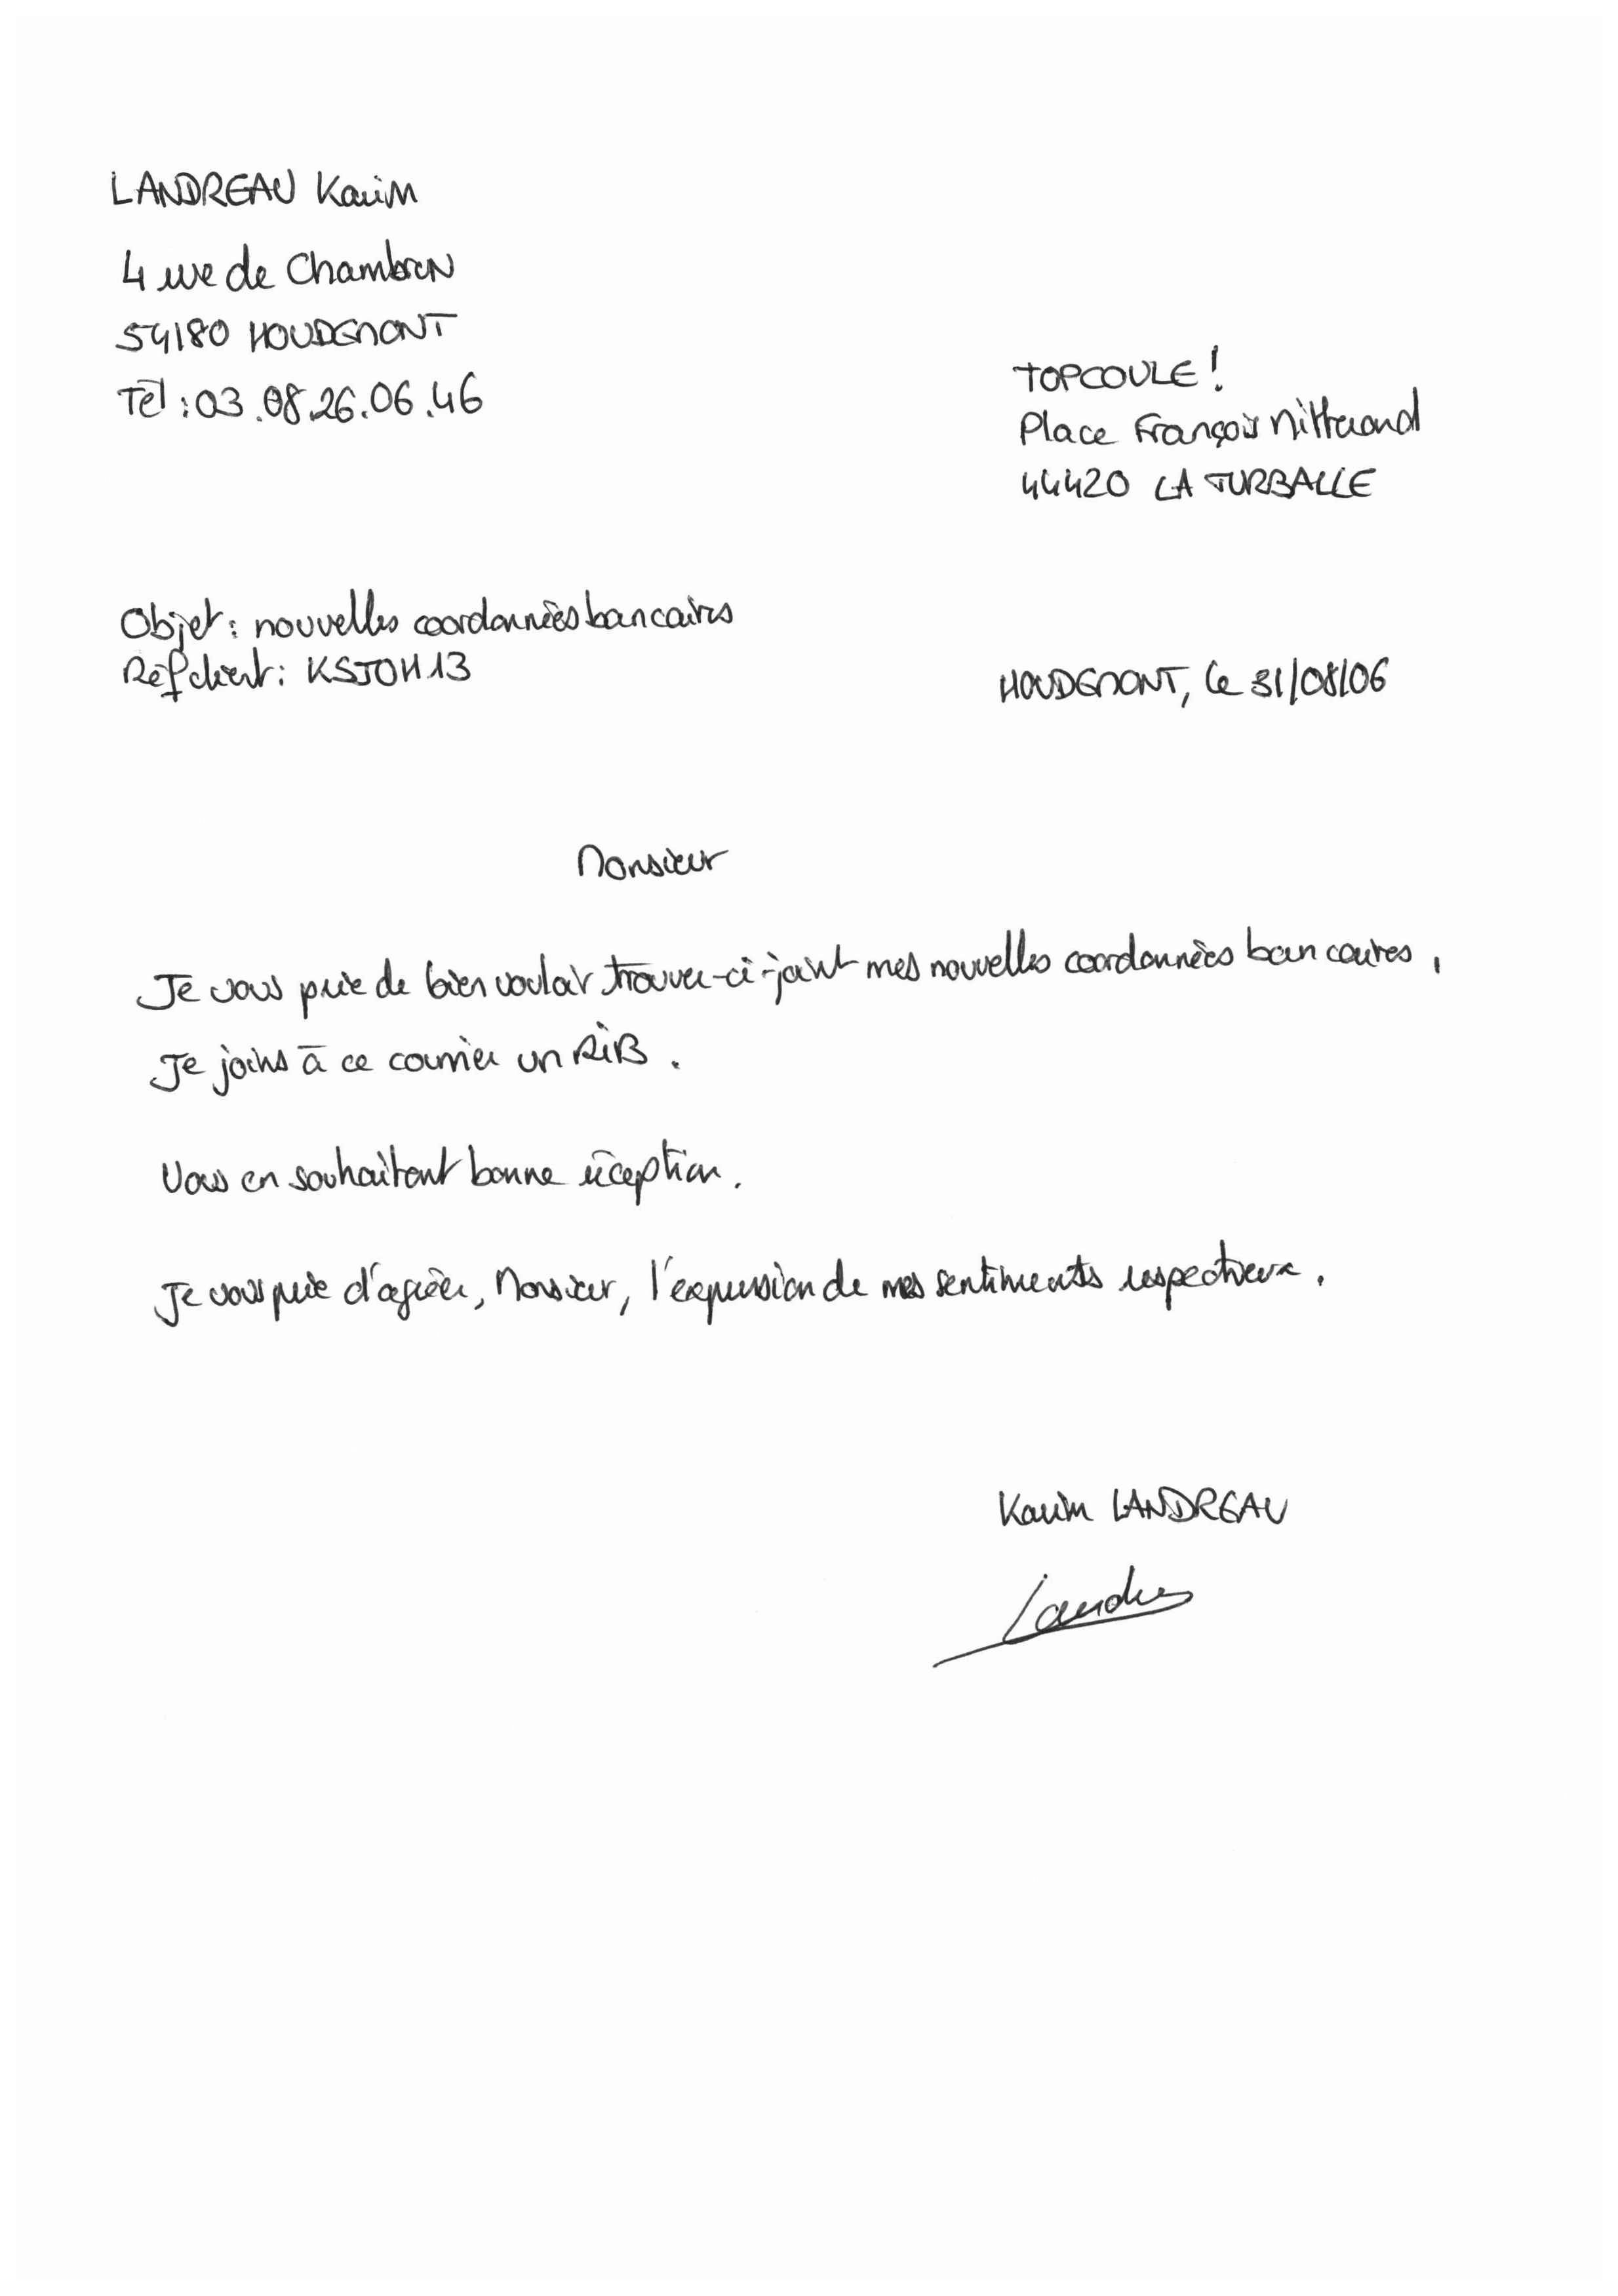 LANDREAU Karim
4 rue de Chambon
54180 HOUDEMONT
Tél : 03.08.26.06.46
TOPCOULE !
Place François Mitterrand
44420 LA TURBALLE
Objet : nouvelles coordonnées bancaires
Réf client : KSJOH13
HOUDEMONT, le 31/08/06
Monsieur
Je vous prie de bien vouloir trouver-ci-joint mes nouvelles coordonnées bancaires,
Je joins à ce courrier un RiB.
Vous en souhaitant bonne réception.
Je vous prie d'agréer, Monsieur, l'expression de mes sentiments respectueux.
Karim LANDREAU